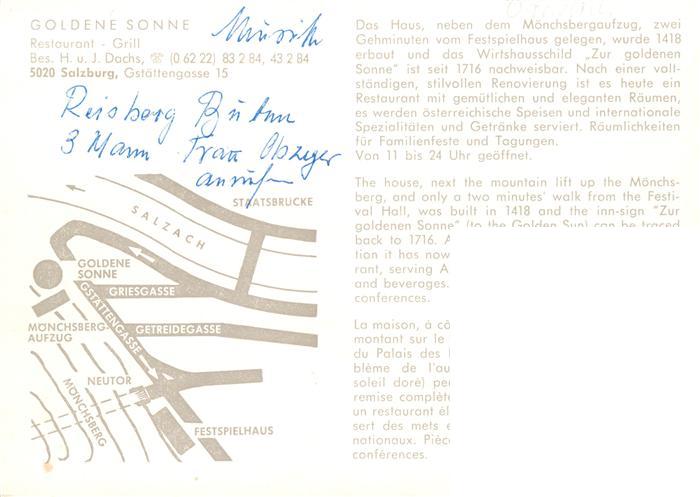 GOLDENE SONNE
Musik
Restaurant - Grill
Bes. H. u. J. Dachs, ☏ (0 62 22) 83 2 84, 43 2 84
5020 Salzburg, Gstättengasse 15
3 Mann Frau
anrufen
STAATSBRÜCKE
SALZACH
GOLDENE
SONNE
GRIESGASSE
GSTÄTTENGASSE
MÖNCHSBERG-
AUFZUG
GETREIDEGASSE
NEUTOR
MÖNCHSBERG
FESTSPIELHAUS
Das Haus, neben dem Mönchsbergaufzug, zwei
Gehminuten vom Festspielhaus gelegen, wurde 1418
erbaut und das Wirtshausschild „Zur goldenen
Sonne" ist seit 1716 nachweisbar. Nach einer voll-
ständigen, stilvollen Renovierung ist es heute ein
Restaurant mit gemütlichen und eleganten Räumen,
es werden österreichische Speisen und internationale
Spezialitäten und Getränke serviert. Räumlichkeiten
für Familienfeste und Tagungen.
Von 11 bis 24 Uhr geöffnet.
The house, next the mountain lift up the Mönchs-
berg, and only a two minutes' walk from the Festi-
val Hall, was built in 1418 and the inn-sign "Zur
goldenen Sonne" (to the Golden Sun) can be traced
back to 1716. A
tion it has now
rant, serving A
and beverages.
conferences.
La maison, à cô
montant sur le
du Palais des
blème de l'au
soleil doré) pe
remise complèt
un restaurant él
sert des mets e
nationaux. Pièc
conférences.